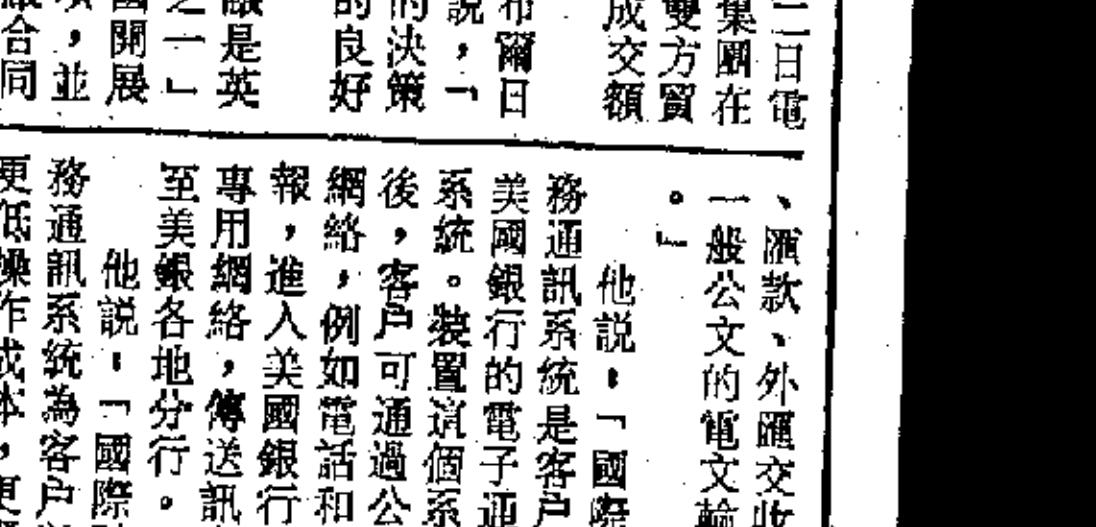 二日電
集團在
雙方貿
成交額
布爾日
說,「
的決策
的良好
是英
之一」
國開展
項,並
合同
、匯款、外匯交收
一般公文的電文輸
。」
他説:「國際
務通訊系統是客戶
美國銀行的電子通
系統。裝置這個系
後,客戶可通過公
網絡,例如電話和
報,進入美國銀行
專用網絡,傳送訊
至美銀各地分行。
他説:「國際
務通訊系統為客戶
更低操作成本,更